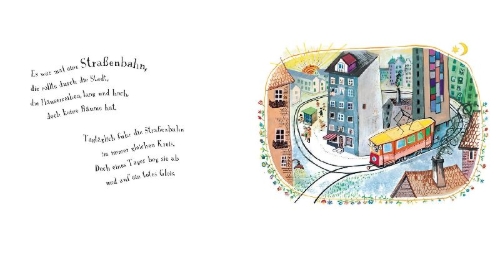 Es war mal eine Straßenbahn,
die rollte durch die Stadt,
die Häuserreihen lang und hoch
doch keine Bäume hat.
Tagtäglich fuhr die Straßenbahn
im immer gleichen Kreis.
Doch eines Tages bog sie ab
und auf ein totes Gleis.